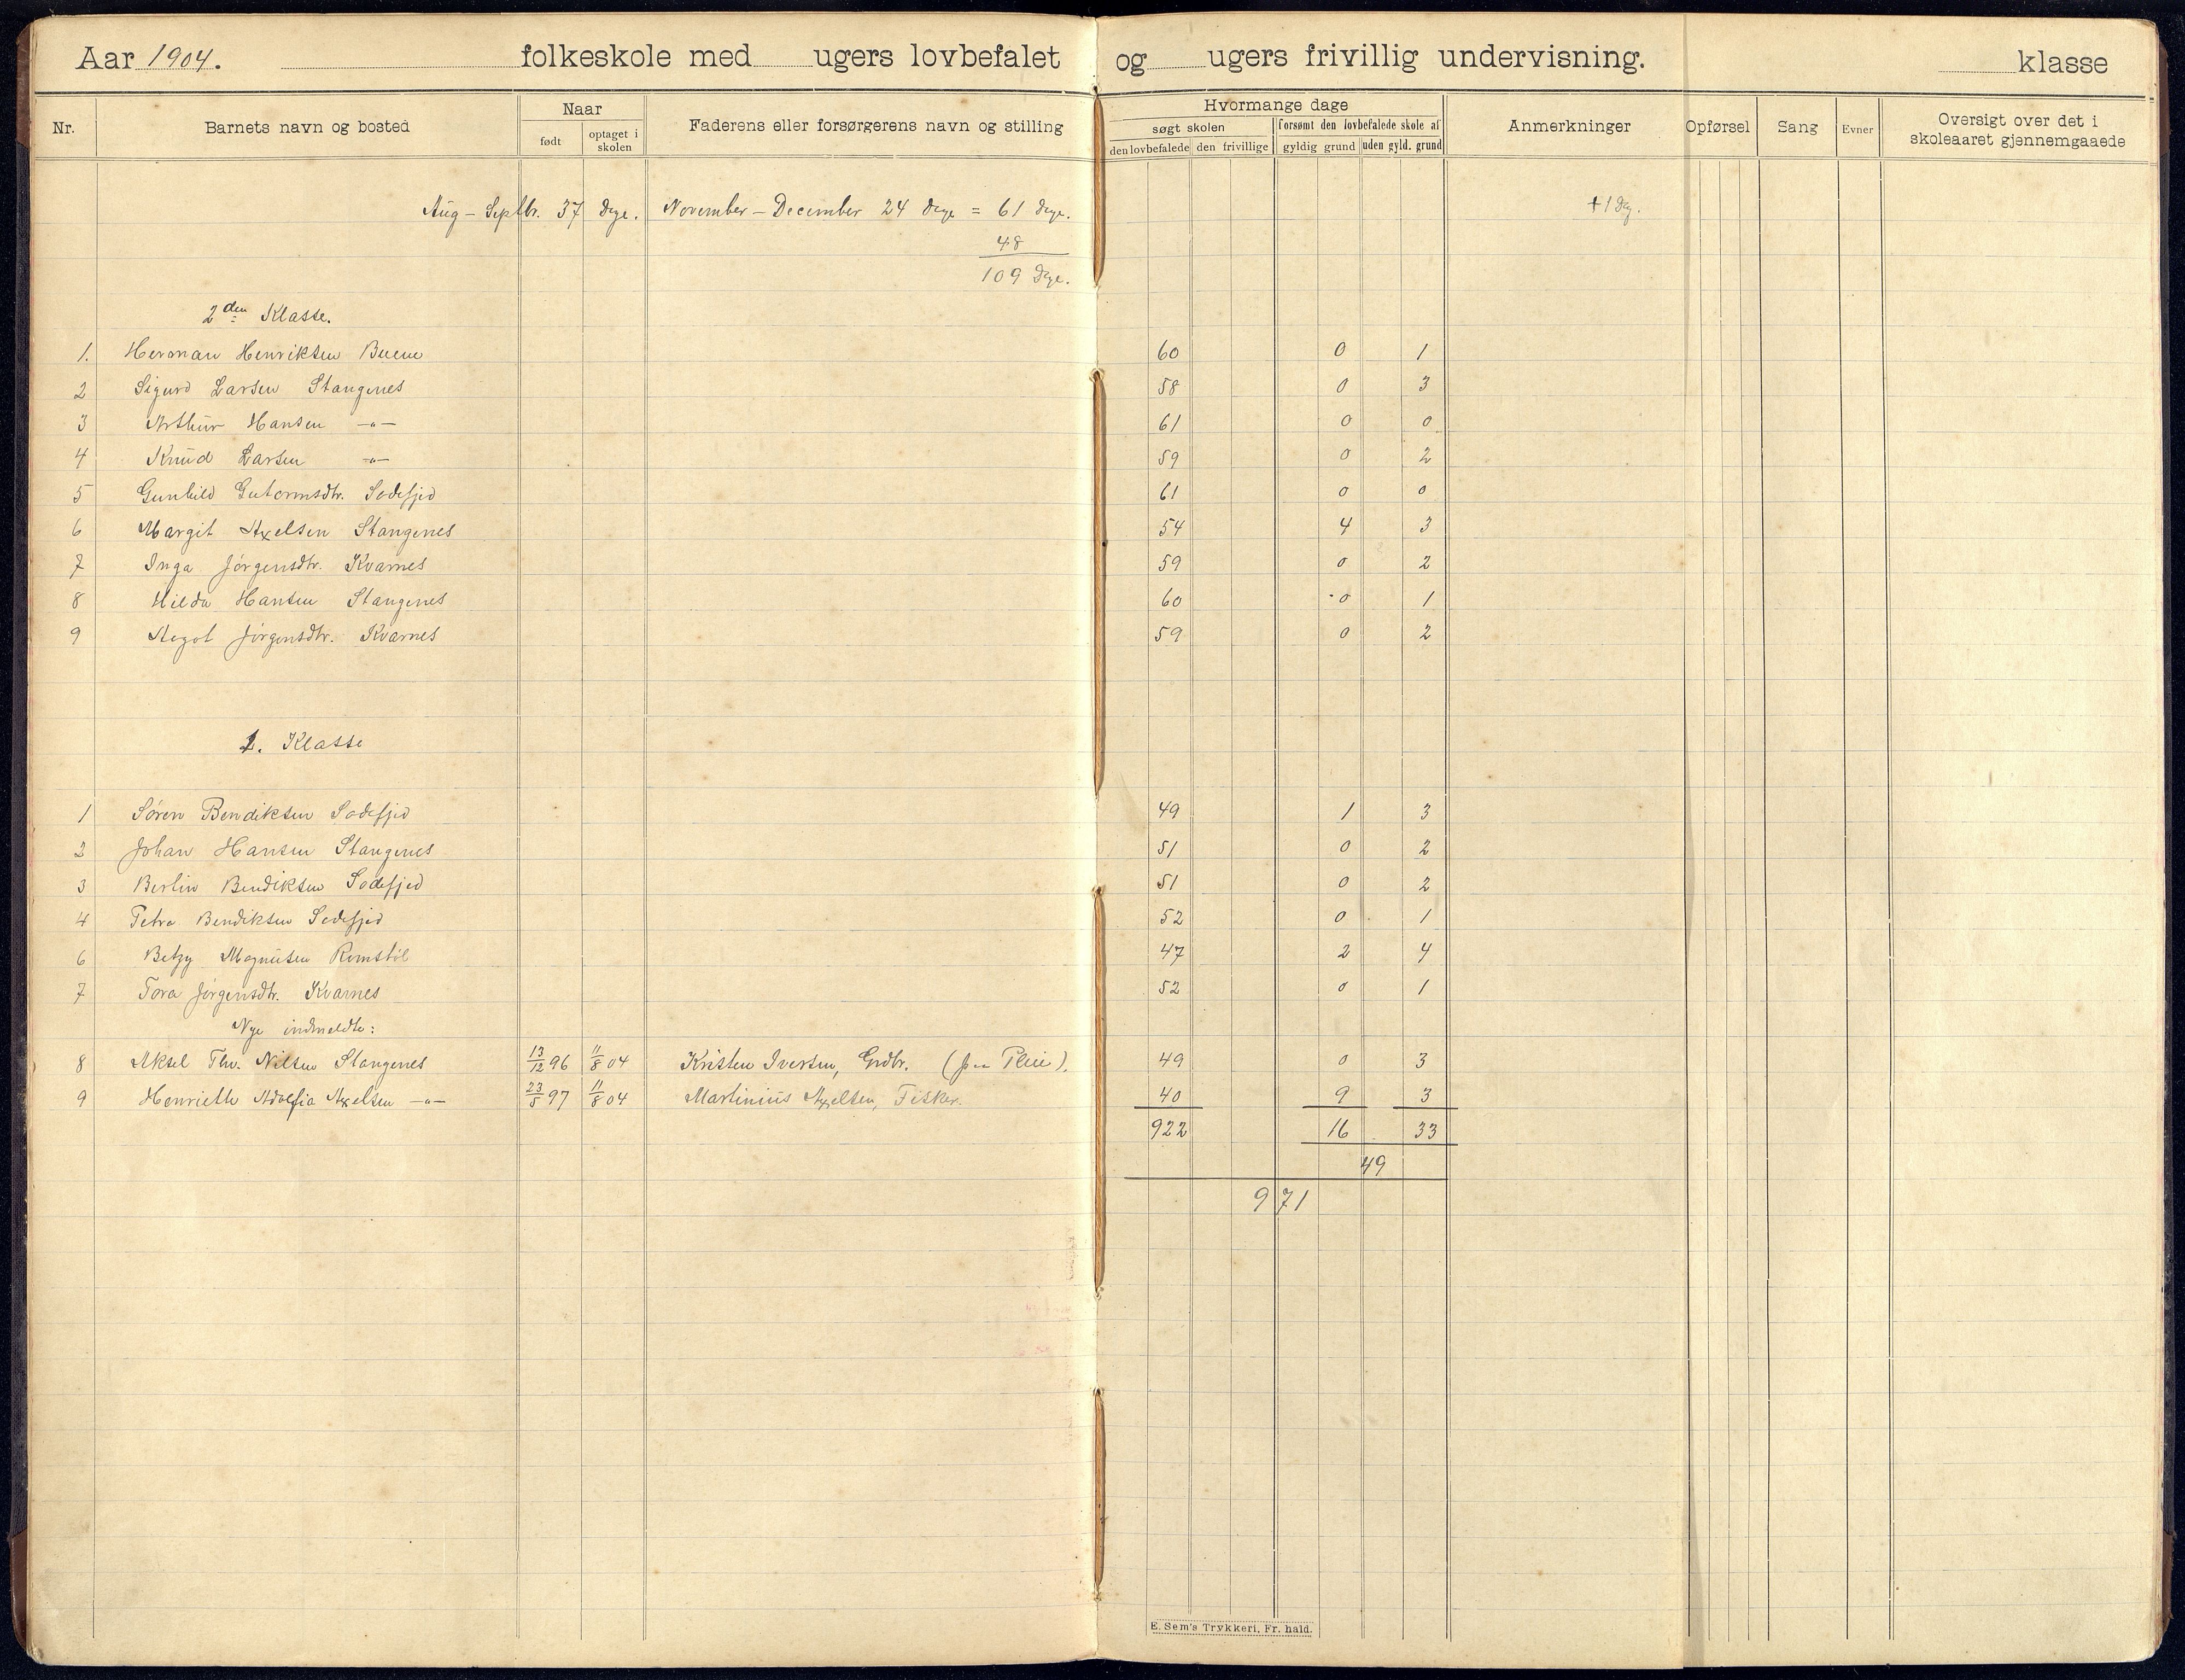 Aar 1904. folkeskole med ugers lovbefalet og ugers frivillig undervisning. klasse
Nr. Barnets navn og bosted Naar født optaget i skolen Faderens eller forsørgerens navn og stilling Hvormange dage søgt skolen den lovbefalede den frivillige forsømt den lovbefalede skole af gyldig grund uden gyld. grund Anmerkninger Opførsel Sang Evner Oversigt over det i skoleaaret gjennemgaaede
Aug – Septbr. 37 dge. November – December 24 dge = 61 dge. +1 dg.
48
109 dge.
2den Klasse.
1. Herman Henriksen Buene 60 0 1
2 Sigurd Larsen Stangenes 58 0 3
3 Arthur Hansen —„— 61 0 0
4 Knud Larsen —„— 59 0 2
5 Gunhild Gutormsdtr. Sodefjed 61 0 0
6 Margit Axelsen Stangenes 54 4 3
7 Inga Jørgensdtr. Kvarnes 59 0 2
8 Hilda Hansen Stangenes 60 0 1
9 Aagot Jørgensdtr. Kvarnes 59 0 2
1. Klasse
1 Søren Bendiksen Sodefjed 49 1 3
2 Johan Hansen Stangenes 51 0 2
3 Berlin Bendiksen Sodefjed 51 0 2
4 Petra Bendiksen Sodefjed 52 0 1
6 Betzy Magnusen Romstøl 47 2 4
7 Tora Jørgensdtr. Kvarnes 52 0 1
Nye indmeldte:
8 Aksel Thv. Nilsen Stangenes 13/12 96 11/8 04 Kristen Iversen, Grdbr. 49 0 3
9 Henriette Adolfia Axelsen —„— 23/5 97 11/8 04 Martinius Axelsen, Fisker. 40 9 3
922 16 33
49
971
E. Sem's Trykkeri, Fr. hald.